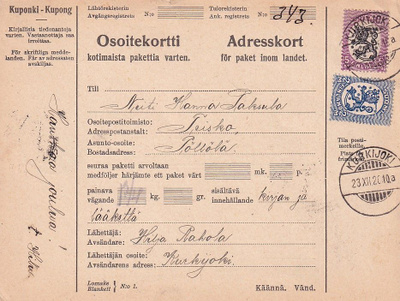 Kuponki - Kupong
Kirjallisia tiedonantoja
varten. Vastaanottaja saa
irroittaa.
För skriftliga medde-
landen. Får av adressaten
avskiljas.
Lähtörekisterin
Avgångsregistrets N:o
Tulorekisterin N:o
Ank. registrets 343.
Osoitekortti
kotimaista pakettia varten.
Adresskort
för paket inom landet.
Till
Neiti Hanna Paksula
Osoitepostitoimisto:
Adresspostanstalt: Teisko,
Asunto-osoite:
Bostadsadress: Pöllölä
seuraa paketti arvoltaan
medföljer härjämte ett paket värt mk. p.
painava
vägande kg. gr. sisältävä
innehållande kirjan ja
lääkettä
Lähettäjä:
Avsändare: Hilja Rahola
Lähettäjän osoite:
Avsändarens adress: Kurkijoki.
Lomake
Blankett N:o 1.
Käännä. Vänd.
Hauskaa joulua!
t. Hilja
Tila posti-
KURKIJOKI
23.XII.20.10